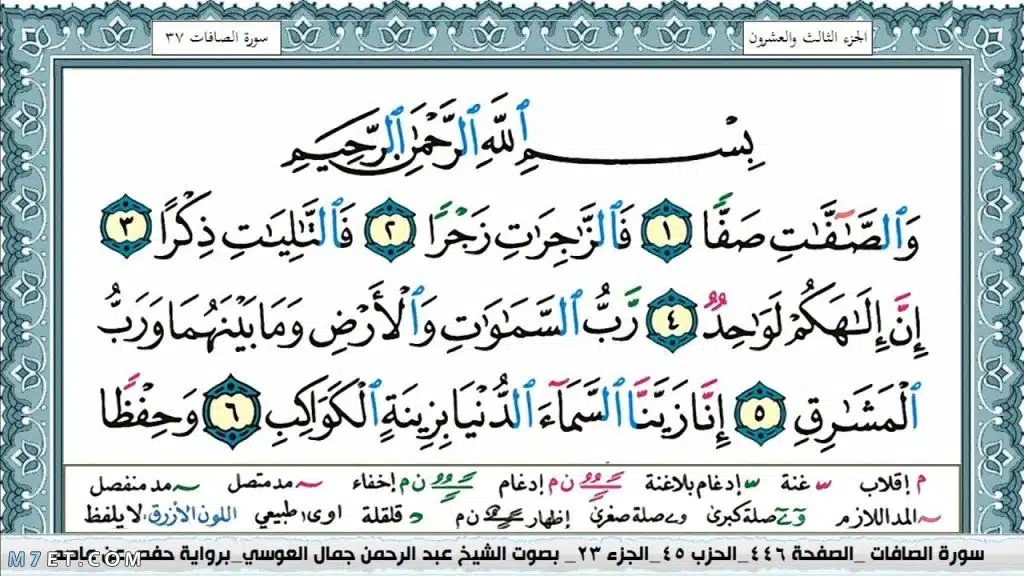 الجزء الثالث والعشرون
سورة الصافات ٣٧
بِسْمِ ٱللَّهِ ٱلرَّحْمَٰنِ ٱلرَّحِيمِ
وَٱلصَّٰٓفَّٰتِ صَفًّا ١ فَٱلزَّٰجِرَٰتِ زَجْرًا ٢ فَٱلتَّٰلِيَٰتِ ذِكْرًا ٣
إِنَّ إِلَٰهَكُمْ لَوَٰحِدٌ ٤ رَّبُّ ٱلسَّمَٰوَٰتِ وَٱلْأَرْضِ وَمَا بَيْنَهُمَا وَرَبُّ
ٱلْمَشَٰرِقِ ٥ إِنَّا زَيَّنَّا ٱلسَّمَآءَ ٱلدُّنْيَا بِزِينَةٍ ٱلْكَوَاكِبِ ٦ وَحِفْظًا
م إقلاب غنة إدغام بلاغنة ن م إدغام ن م إخفاء مد متصل مد منفصل
المد اللازم صلة كبرى و ے صلة صغرى إظهار ن م د قلقلة اوى طبيعي اللون الأزرق: لا يلفظ
سورة الصافات _الصفحة ٤٤٦_الحزب ٤٥_الجزء ٢٣_ بصوت الشيخ عبد الرحمن جمال العوسي_برواية حفص عن عاصم
M7ET.COM